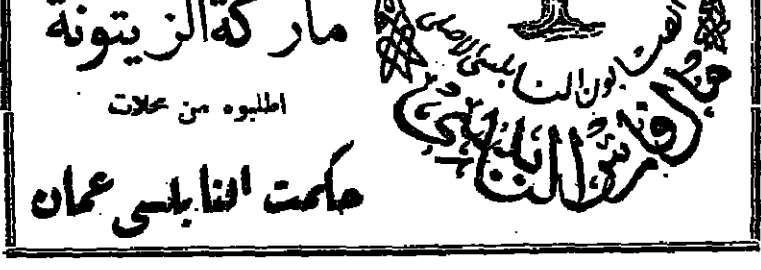 ماركة الزيتونة
اطلبوه من محلات
حكمت النابلسي عمان
الصابون النابلسي الاصلي
النابلسي